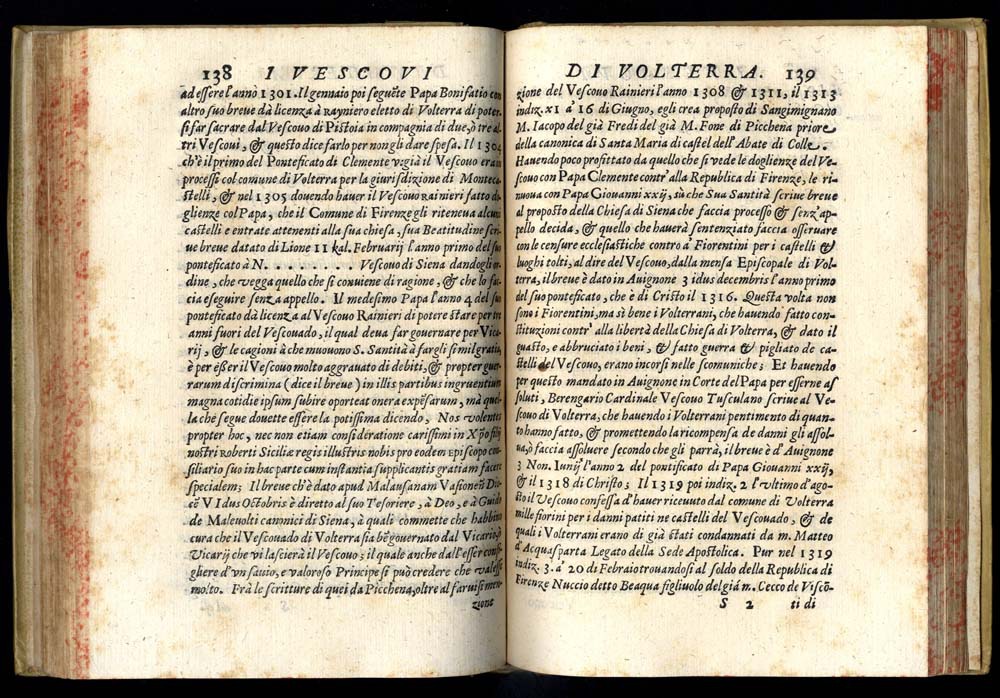 138 I VESCOVI
ad essere l'anno 1301. Il gennaio poi seguẽte Papa Bonifatio con
altro suo breve dà licenza à RAYniero eletto di Volterra di poter
si far sacrare dal Vescovo di Pistoia in compagnia di due, ò tre al
tri Vescovi, & questo dice farlo per non gli dare spesa. Il 1304
ch'è il primo del Ponteficato di Clemente V. già il Vescovo era in
processi col comune di Volterra per la giurisdizione di Monteca
stelli, & nel 1305 dovendo haver il Vescovo RAINIERI fatto do
glienze col Papa, che il Comune di Firenze gli riteneva alcuni
castelli e entrate attenenti alla sua chiesa, sua Beatitudine scri
ve breve datato di Lione 11 kal. Februarij l'anno primo del suo
ponteficato à N. . . . . . . . Vescovo di Siena dandogli or
dine, che vegga quello che si conviene di ragione, & che lo fac
cia eseguire senza appello. Il medesimo Papa l'anno 4 del suo
ponteficato dà licenza al Vescovo Rainieri di potere stare per tre
anni fuori del Vescovado, il qual deva far governare per Vica
rij, & le cagioni à che muovono S. Santità à fargli simil gratia,
è per eßer il Vescovo molto aggravato di debiti, & propter guer
rarum discrimina (dice il breve) in illis partibus ingruentium
magna cotidie ipsum subire oporteat onera expẽsarum, mà quel
la che segue dovette essere la potissima dicendo, Nos volentes
propter hoc, nec non etiam consideratione carissimi in Xp̃o filij
nostri Roberti Siciliæ regis illustris nobis pro eodem Episcopo con
siliario suo in hac parte cum instantia supplicantis gratiam facere
specialem; Il breve ch'è dato apud Malausanam Vasionẽ Dio
cẽ VI dus Octobris è diretto al suo Tesoriere, à Deo, e à Guido
de Malevolti canonici di Siena, à quali commette che habbino
cura che il Vescovado di Volterra sia bẽ governato dal Vicario, ò
Vicarij che vi lascierà il Vescovo; il quale anche dall'esser consi
gliere d'vn savio, e valoroso Principe si può credere che valesse
molto. Frà le scritture di quei da Picchena, oltre al farvisi men-
zione
DI VOLTERRA. 139
zione del Vescovo Rainieri l'anno 1308 & 1311, il 1313
indiz. XI à 16 di Giugno, egli crea proposto di Sangimignano
M. Iacopo del già Fredi del già M. Fone di Picchena priore
della canonica di Santa Maria di castel dell'Abate di Colle.
Havendo poco profittato da quello che si vede le doglienze del Ve-
scovo con Papa Clemente contr'alla Republica di Firenze, le ri-
nuova con Papa Giovanni xxij, sù che Sua Santità scrive breve
al proposto della Chiesa di Siena che faccia processo & senz'ap
pello decida, & quello che haverà sentenziato faccia osservare
con le censure ecclesiastiche contro a' Fiorentini per i castelli &
luoghi tolti, al dire del Vescovo, dalla mensa Episcopale di Vol-
terra, il breve è dato in Avignone 3 idus decembris l'anno primo
del suo ponteficato, che è di Cristo il 1316. Questa volta non
sono i Fiorentini, ma sì bene i Volterrani, che havendo fatto con-
stituzioni contr' alla libertà della Chiesa di Volterra, & dato il
guasto, e abbruciato i beni, & fatto guerra & pigliato de ca-
stelli del Vescovo, erano incorsi nelle scomuniche; Et havendo
per questo mandato in Avignone in Corte del Papa per esserne as
soluti, Berengario Cardinale Vescovo Tusculano scrive al Ve-
scovo di Volterra, che havendo i Volterrani pentimento di quan-
to hanno fatto, & promettendo la ricompensa de danni gli assol-
va, ò faccia assolvere secondo che gli parrà, il breve è d'Avignone
3 Non. Iunij l'anno 2 del pontificato di Papa Giovanni xxij,
& il 1318 di Christo; Il 1319 poi indiz. 2 l'vltimo d'ago-
sto il Vescovo confessa d'haver ricevuto dal comune di Volterra
mille fiorini per i danni patiti ne castelli del Vescovado, & de
quali i Volterrani erano di già stati condannati da m. Matteo
d'Acquasparta Legato della Sede Apostolica. Pur nel 1319
indiz. 3. a' 20 di Febraio trovandosi al soldo della Republica di
Firenze Nuccio detto Beaqua figliuolo del già m. Cecco de Viscõ-
S 2 ti di